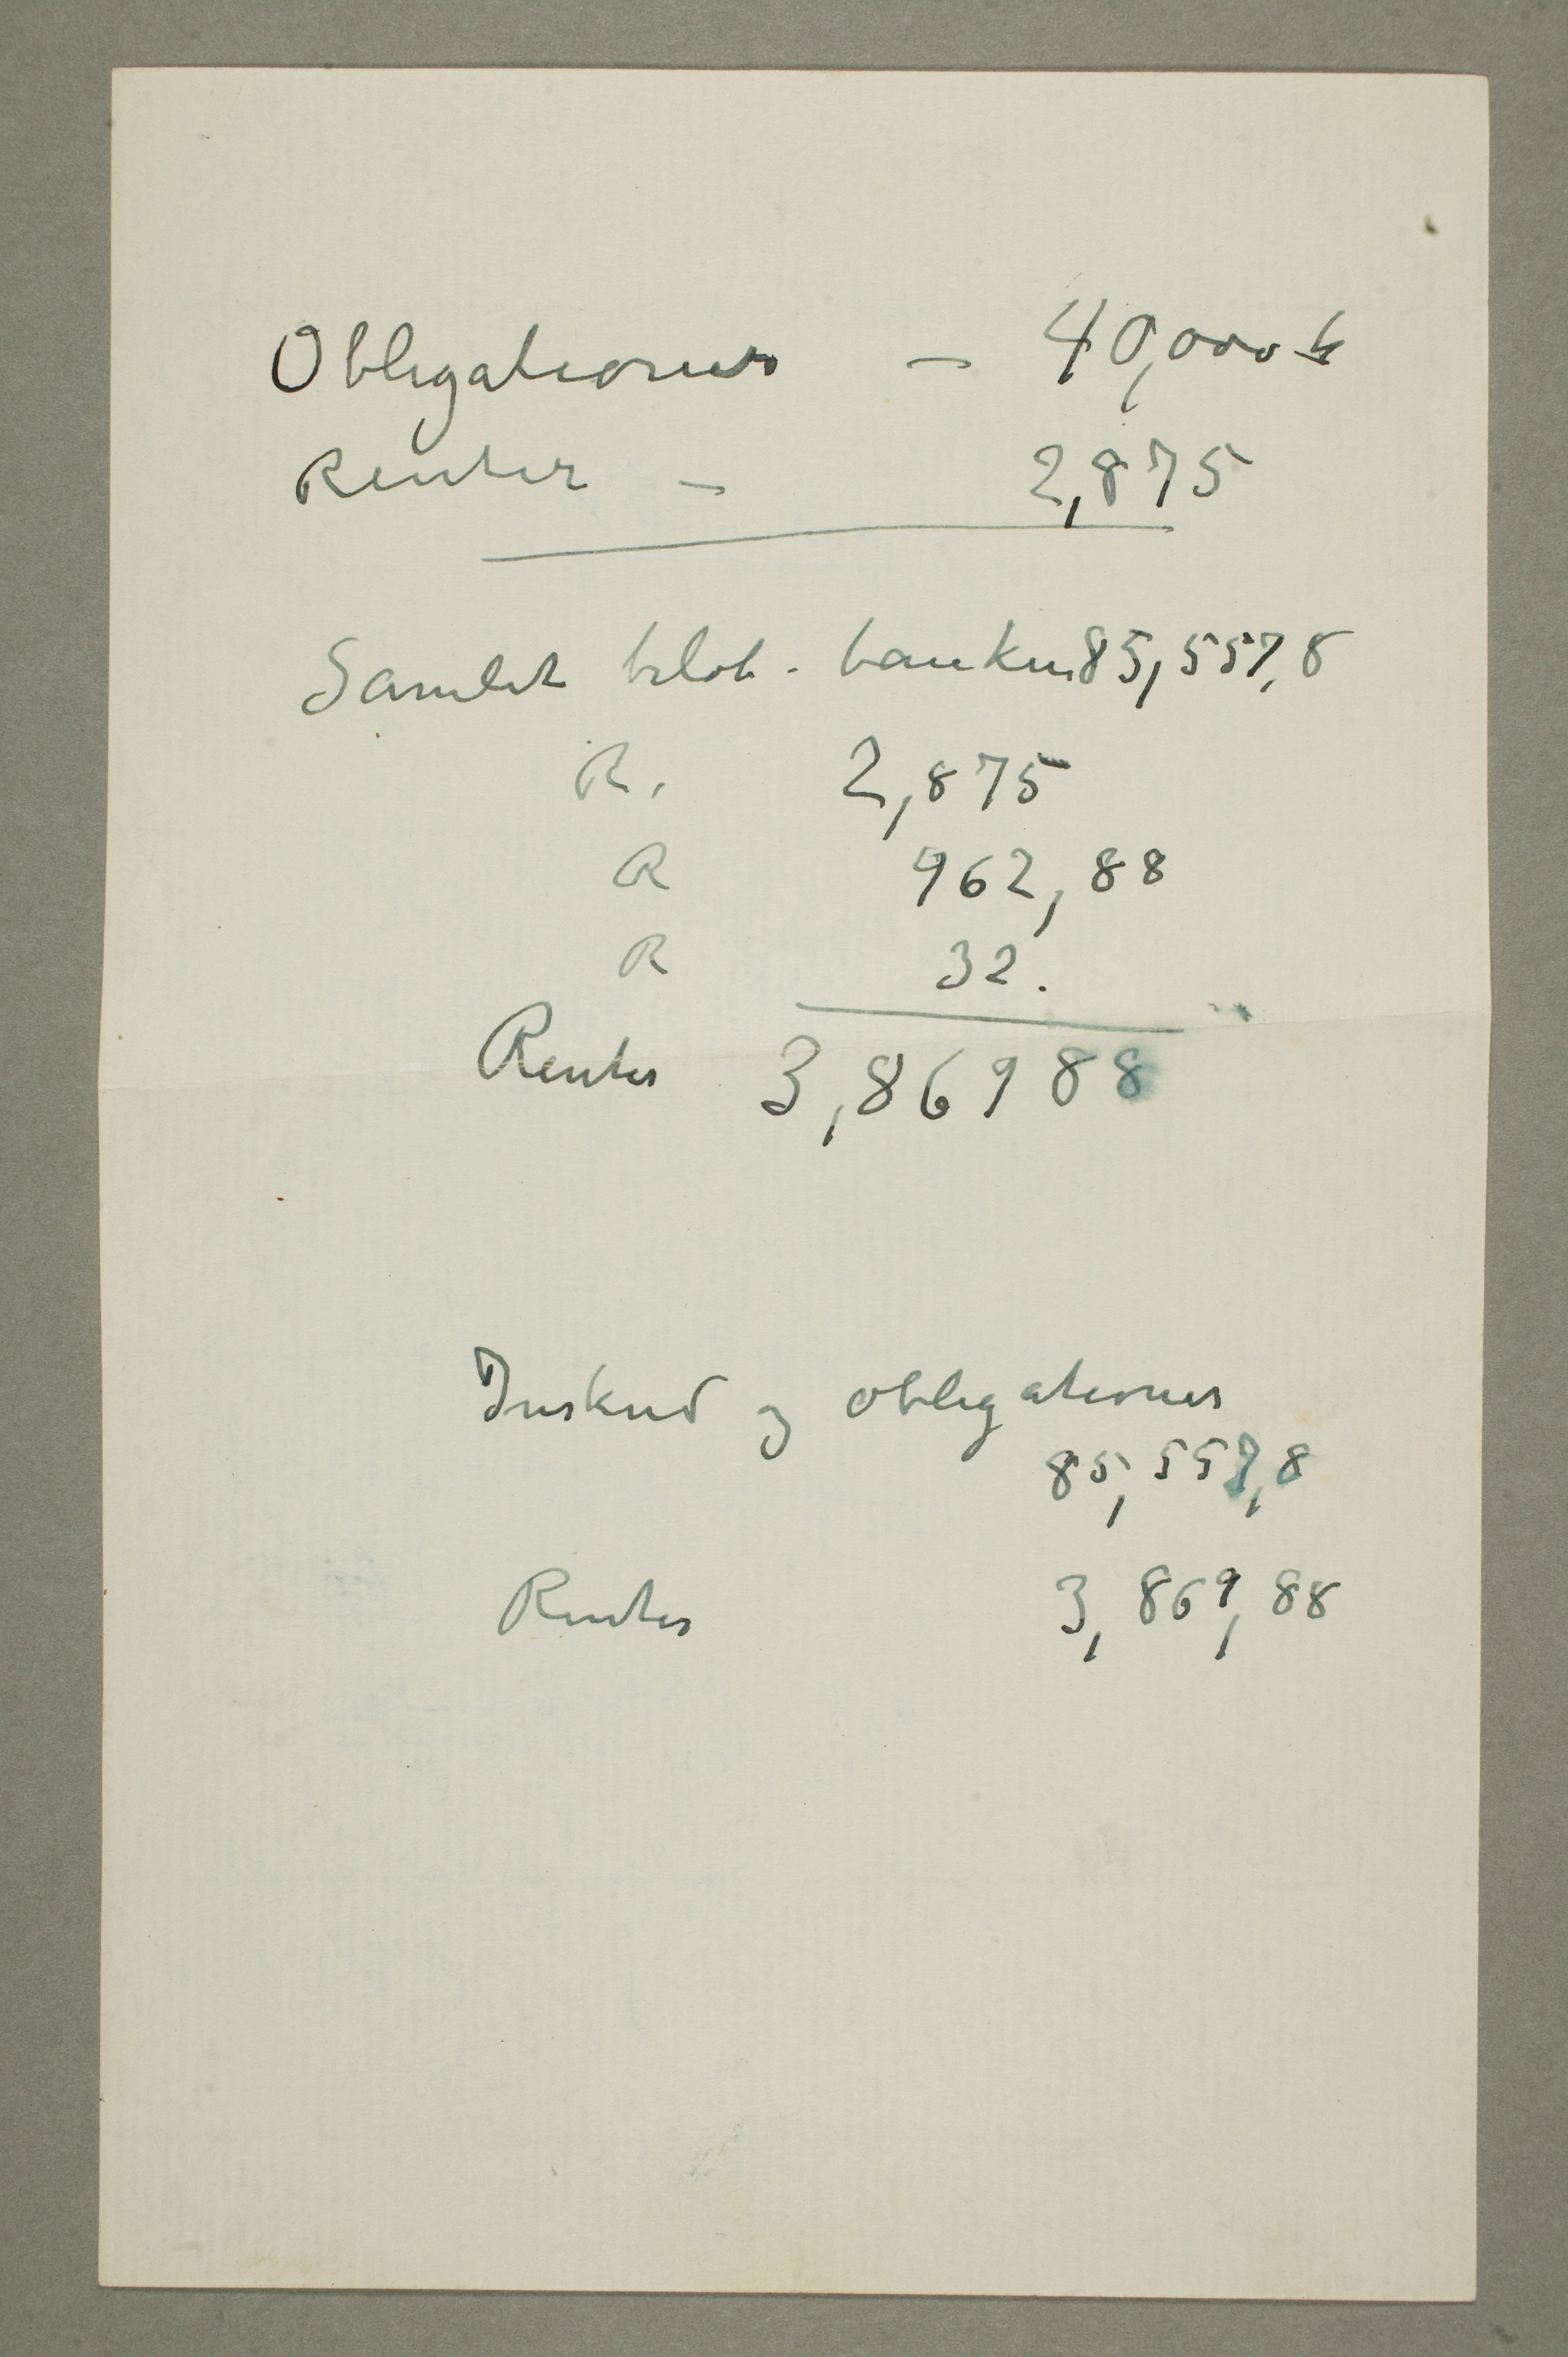 Obligationer – 40,000 k
Renter – 2,875
Samlet beløb - banken 85,557,8
R. 2,875
R 962,88
R 32.
Renter 3,869 88
Inskud og obligationer
85,557,8
Renter 3,869,88